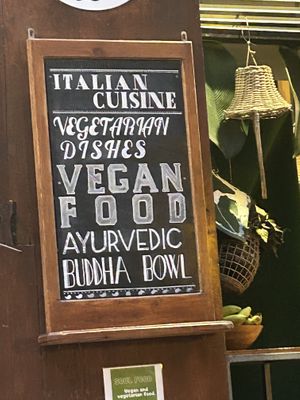 ITALIAN
CUISINE
VEGETARIAN
DISHES
VEGAN
FOOD
AYURVEDIC
BUDDHA BOWL
SOUL FOOD
Vegan and
vegetarian food